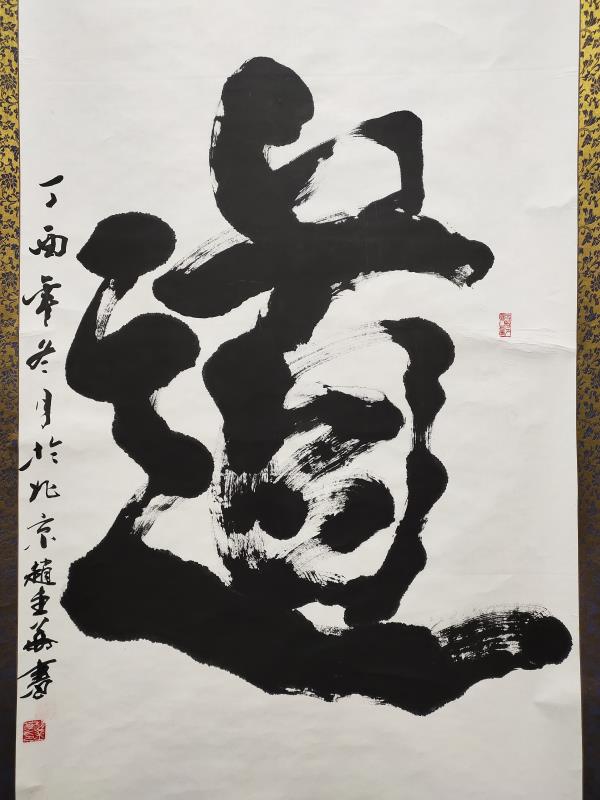 道
丁酉年冬月於北京趙華書